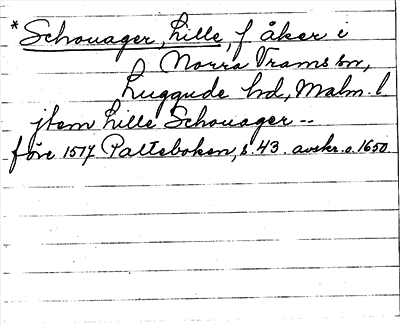 *Schouager, Lille, f åker i
Norra Vrams sn,
Luggude hd, Malm. l
jtem Lille Schouager --
före 1517 Palteboken, s. 43. avskr. o. 1650